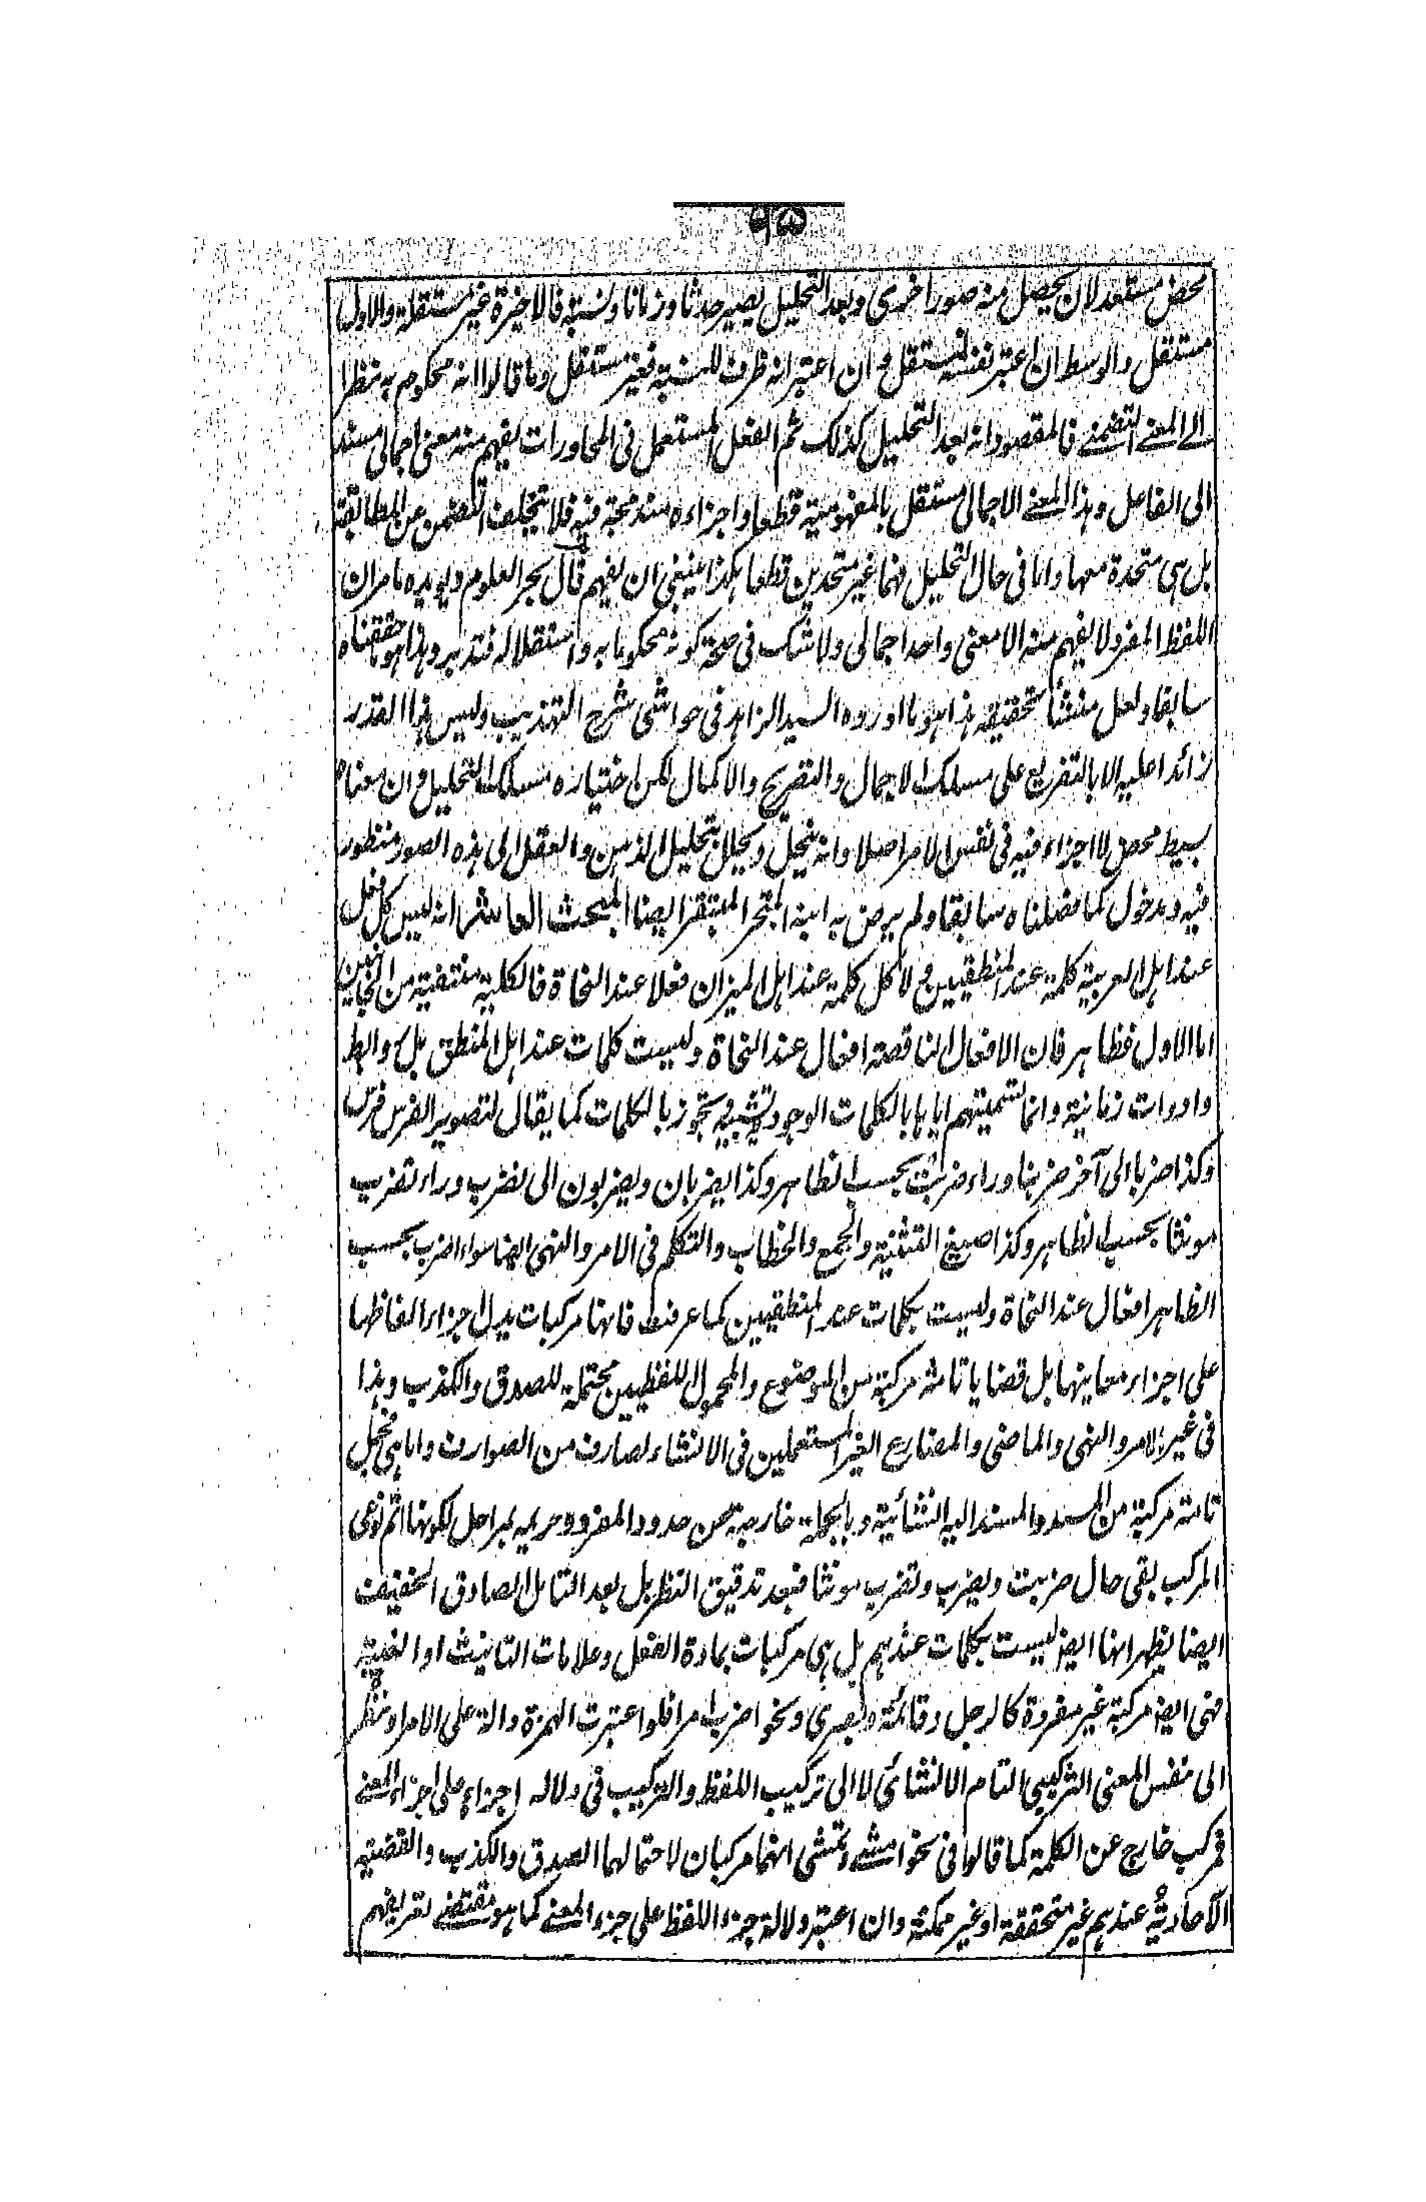 محض مستعد لان يحصل منه صور اخرى وبعد التحليل يصير حدثا وزمانا ونسبته فالاخيرة غير مستقلة والاول
مستقل والوسط ان اعتبر نفسه فمستقل وان اعتبر انه ظرف للنسبة فغير مستقل وما قالوا انه محكوم به نظرا
الى المعنى التضمنى فالمقصود انه بعد التحليل كذلك ثم الفعل المستعمل فى المحاورات يفهم منه معنى اجمالى مسند
الى الفاعل وهذا المعنى الاجمالى مستقل بالمفهومية قطعا واجزاءه مندمجة فيه فلا يتخلف التضمن عن المطابقة
بل هى متحدة معها واما فى حال التحليل فهما غير متحدين قطعا هكذا ينبغى ان يفهم قال بحر العلوم ويؤيده ما مر ان
اللفظ المفرد لا يفهم منه الا معنى واحد اجمالى ولا شك فى صحة كونه محكوما به واستقلاله فتدبر وهذا هو ما حققناه
سابقا ولعل منشأ تحقيقه هذا هو ما اورده السيد الزاهد فى حواشى شرح التهذيب وليس هذا القدر
زائدا عليه الا بالتفريع على مسلك الاجمال والتصريح والاكمال لكن اختياره مسلك التحليل وان معناه
بسيط محض لا اجزاء فيه فى نفس الامر اصلا وانه ينحل ويحلل بتحليل الذهن والعقل الى هذه الصور منظور
فيه ومدخول كما فصلناه سابقا ولم يرض به ابنه المتبحر المبتقر ايضا المبحث العاشر انه ليس كل فعل
عند اهل العربية كلمة عند المنطقيين ولا كل كلمة عند اهل الميزان فعلا عند النحاة فالكلية منتفية من الجانبين
اما الاول فظاهر فان الافعال الناقصة افعال عند النحاة وليست كلمات عند اهل المنطق بل روابط
وادوات زمانية وانما تسميتهم اياها بالكلمات الوجودية تشبيه وتجوز بالكلمات كما يقال لتصوير الفرس فرس
وكذا ضربا الى آخر ضربنا وراء ضربت بحسب الظاهر وكذا يضربان ويضربون الى نضرب وراء تضرب
مونثا بحسب الظاهر وكذا صيغ التثنية والجمع والخطاب والتكلم فى الامر والنهى ايضا سواء اضرب بحسب
الظاهر افعال عند النحاة وليست بكلمات عند المنطقيين كما عرفت فانها مركبات يدل اجزاء الفاظها
على اجزاء معانيها بل قضايا تامة مركبة من الموضوع والمحمول اللفظيين محتملة للصدق والكذب وهذا
فى غير الامر والنهى والماضى والمضارع الغير المستعملين فى الانشاء لصارف من الصوارف واما هى فجمل
تامة مركبة من المسند والمسند اليه انشائية وبالجملة خارجة عن حدود المفرد وحريمه بمراحل لكونها اتم نوعى
المركب بقى حال ضربت ويضرب وتضرب مونثا فبعد تدقيق النظر بل بعد التامل الصادق الخفيف
ايضا يظهر انها ايضا ليست بكلمات عندهم بل هى مركبات بمادة الفعل وعلامات التانيث او الغيبة
فهى ايضا مركبة غير مفردة كالرجل وقائمة وبصرى ونحو اضرب امرا فلو اعتبرت الهمزة دالة على الامر او نظر
الى نفس المعنى التركيبى التام الانشائى لا الى تركيب اللفظ والتركيب فى دلالة اجزاء على اجزاء المعنى
فمركب خارج عن الكلمة كما قالوا فى نحو امشى وتمشى انهما مركبان لاحتمالهما الصدق والكذب والقضية
الآحادية عندهم غير متحققة او غير ممكنة وان اعتبر دلالة جزء اللفظ على جزء المعنى كما هو مقتضى تعريفهم